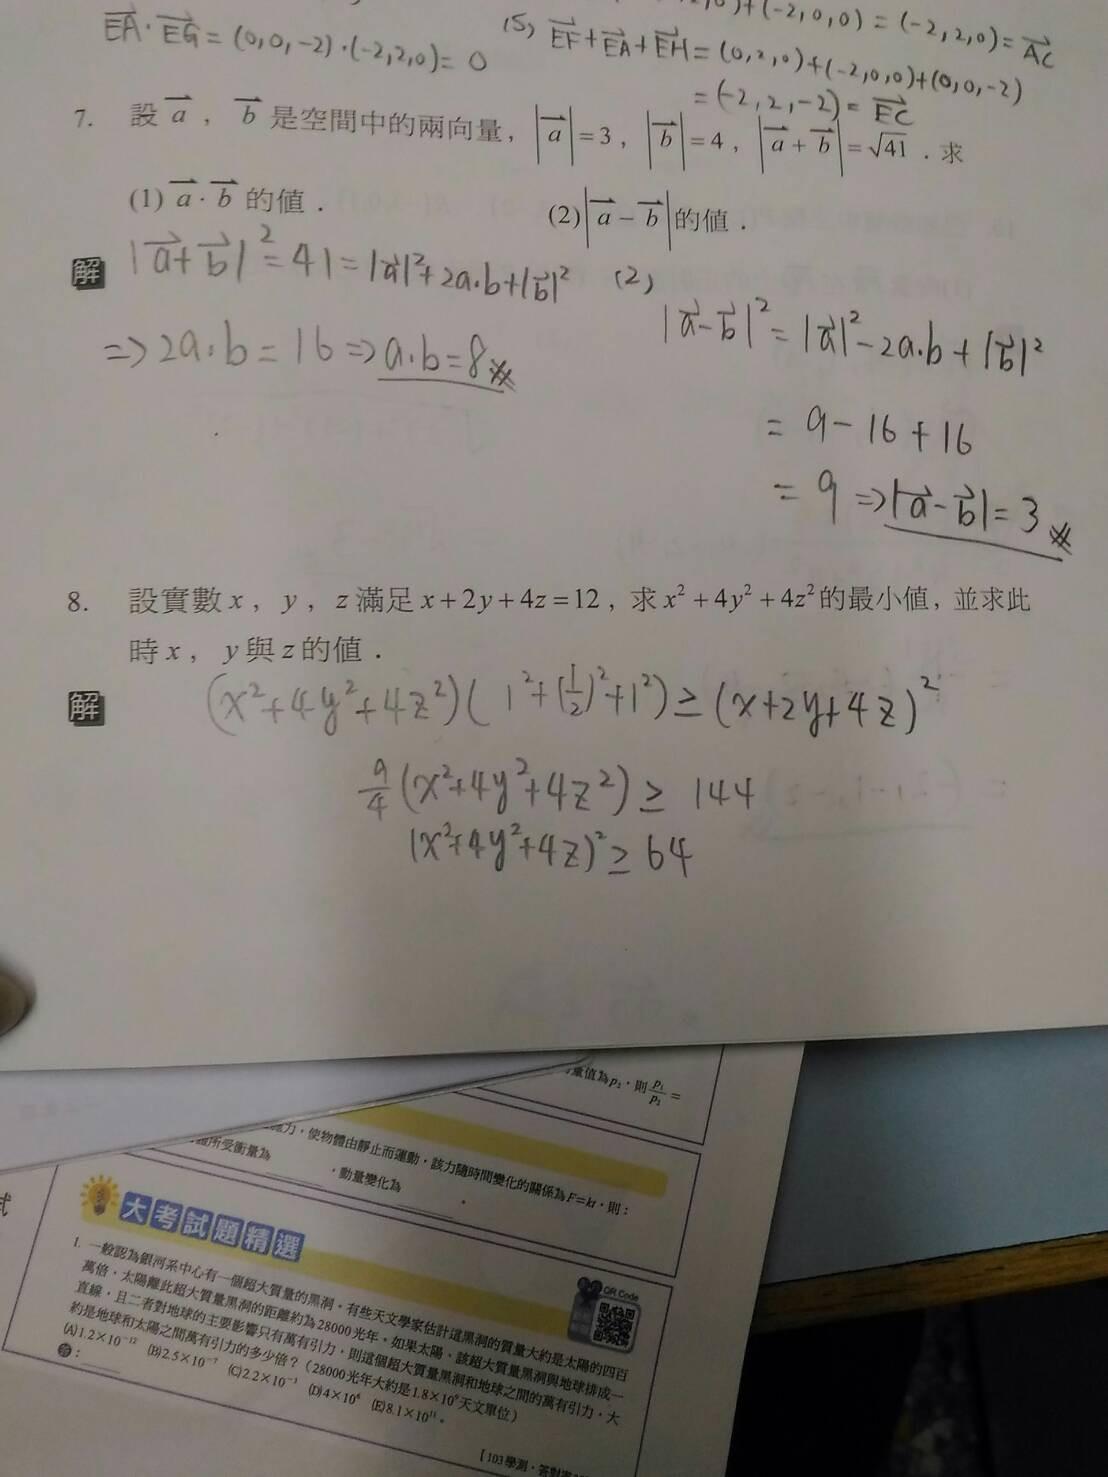 +(-2,0,0) = (-2,2,0) = AC
EA·EG = (0,0,-2)·(-2,2,0) = 0
(5) EF+EA+EH = (0,2,0)+(-2,0,0)+(0,0,-2)
= (-2,2,-2) = EC
7. 設 a , b 是空間中的兩向量, |a|=3, |b|=4, |a+b|=√41 . 求
(1) a·b 的值. (2) |a-b| 的值.
解 |a+b|²=41=|a|²+2a·b+|b|²
=> 2a·b = 16 => a·b=8
(2) |a-b|² = |a|²-2a·b+|b|²
= 9-16+16
= 9 => |a-b| = 3
8. 設實數 x, y, z 滿足 x+2y+4z=12, 求 x²+4y²+4z² 的最小值, 並求此
時 x, y 與 z 的值.
解 (x²+4y²+4z²)(1²+(1/2)²+1²) ≥ (x+2y+4z)²
9/4 (x²+4y²+4z²) ≥ 144
(x²+4y²+4z)² ≥ 64
量值為p₂,則 p₁/p₂ =
力,使物體由靜止而運動,該力隨時間變化的關係為F=kt,則:
所受衝量為 ,動量變化為 。
大考試題精選
QR Code
1. 一般認為銀河系中心有一個超大質量的黑洞。有些天文學家估計這黑洞的質量大約是太陽的四百
萬倍,太陽離此超大質量黑洞的距離約為28000光年。如果太陽、該超大質量黑洞與地球排成一
直線,且二者對地球的主要影響只有萬有引力,則這個超大質量黑洞和地球之間的萬有引力,大
約是地球和太陽之間萬有引力的多少倍?(28000光年大約是1.8×10⁹天文單位)
(A)1.2×10⁻¹² (B)2.5×10⁻⁷ (C)2.2×10⁻³ (D)4×10⁶ (E)8.1×10¹¹。
答:
【103學測,答對率